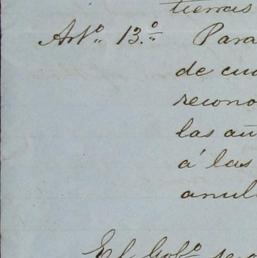 tierras
Arto. 13.o Para
de cu
recono
las au
á las
anul
El Gobo. se